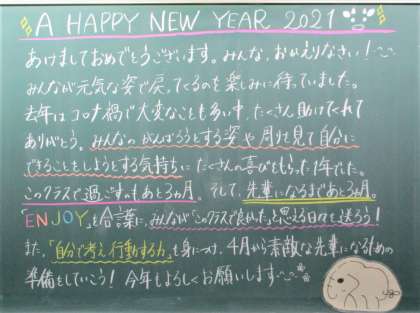 A HAPPY NEW YEAR 2021
あけましておめでとうございます。みんな、おかえりなさい！
みんなが元気な姿で戻ってくるのを楽しみに待っていました。
去年はコロナ禍で大変なことも多い中、たくさん助けてくれて
ありがとう。みんなのがんばろうとする姿や周りを見て自分に
できることをしようとする気持ちにたくさんの喜びをもらった1年でした。
このクラスで過ごすのもあと3ヵ月。そして、先輩になるまであと3ヵ月。
「ENJOY」を合言葉に、みんなが「このクラスで良かった」と思える日々を送ろう！
また、「自分で考え行動する力」を身につけ、4月から素敵な先輩になるための
準備をしていこう！今年もよろしくお願いします